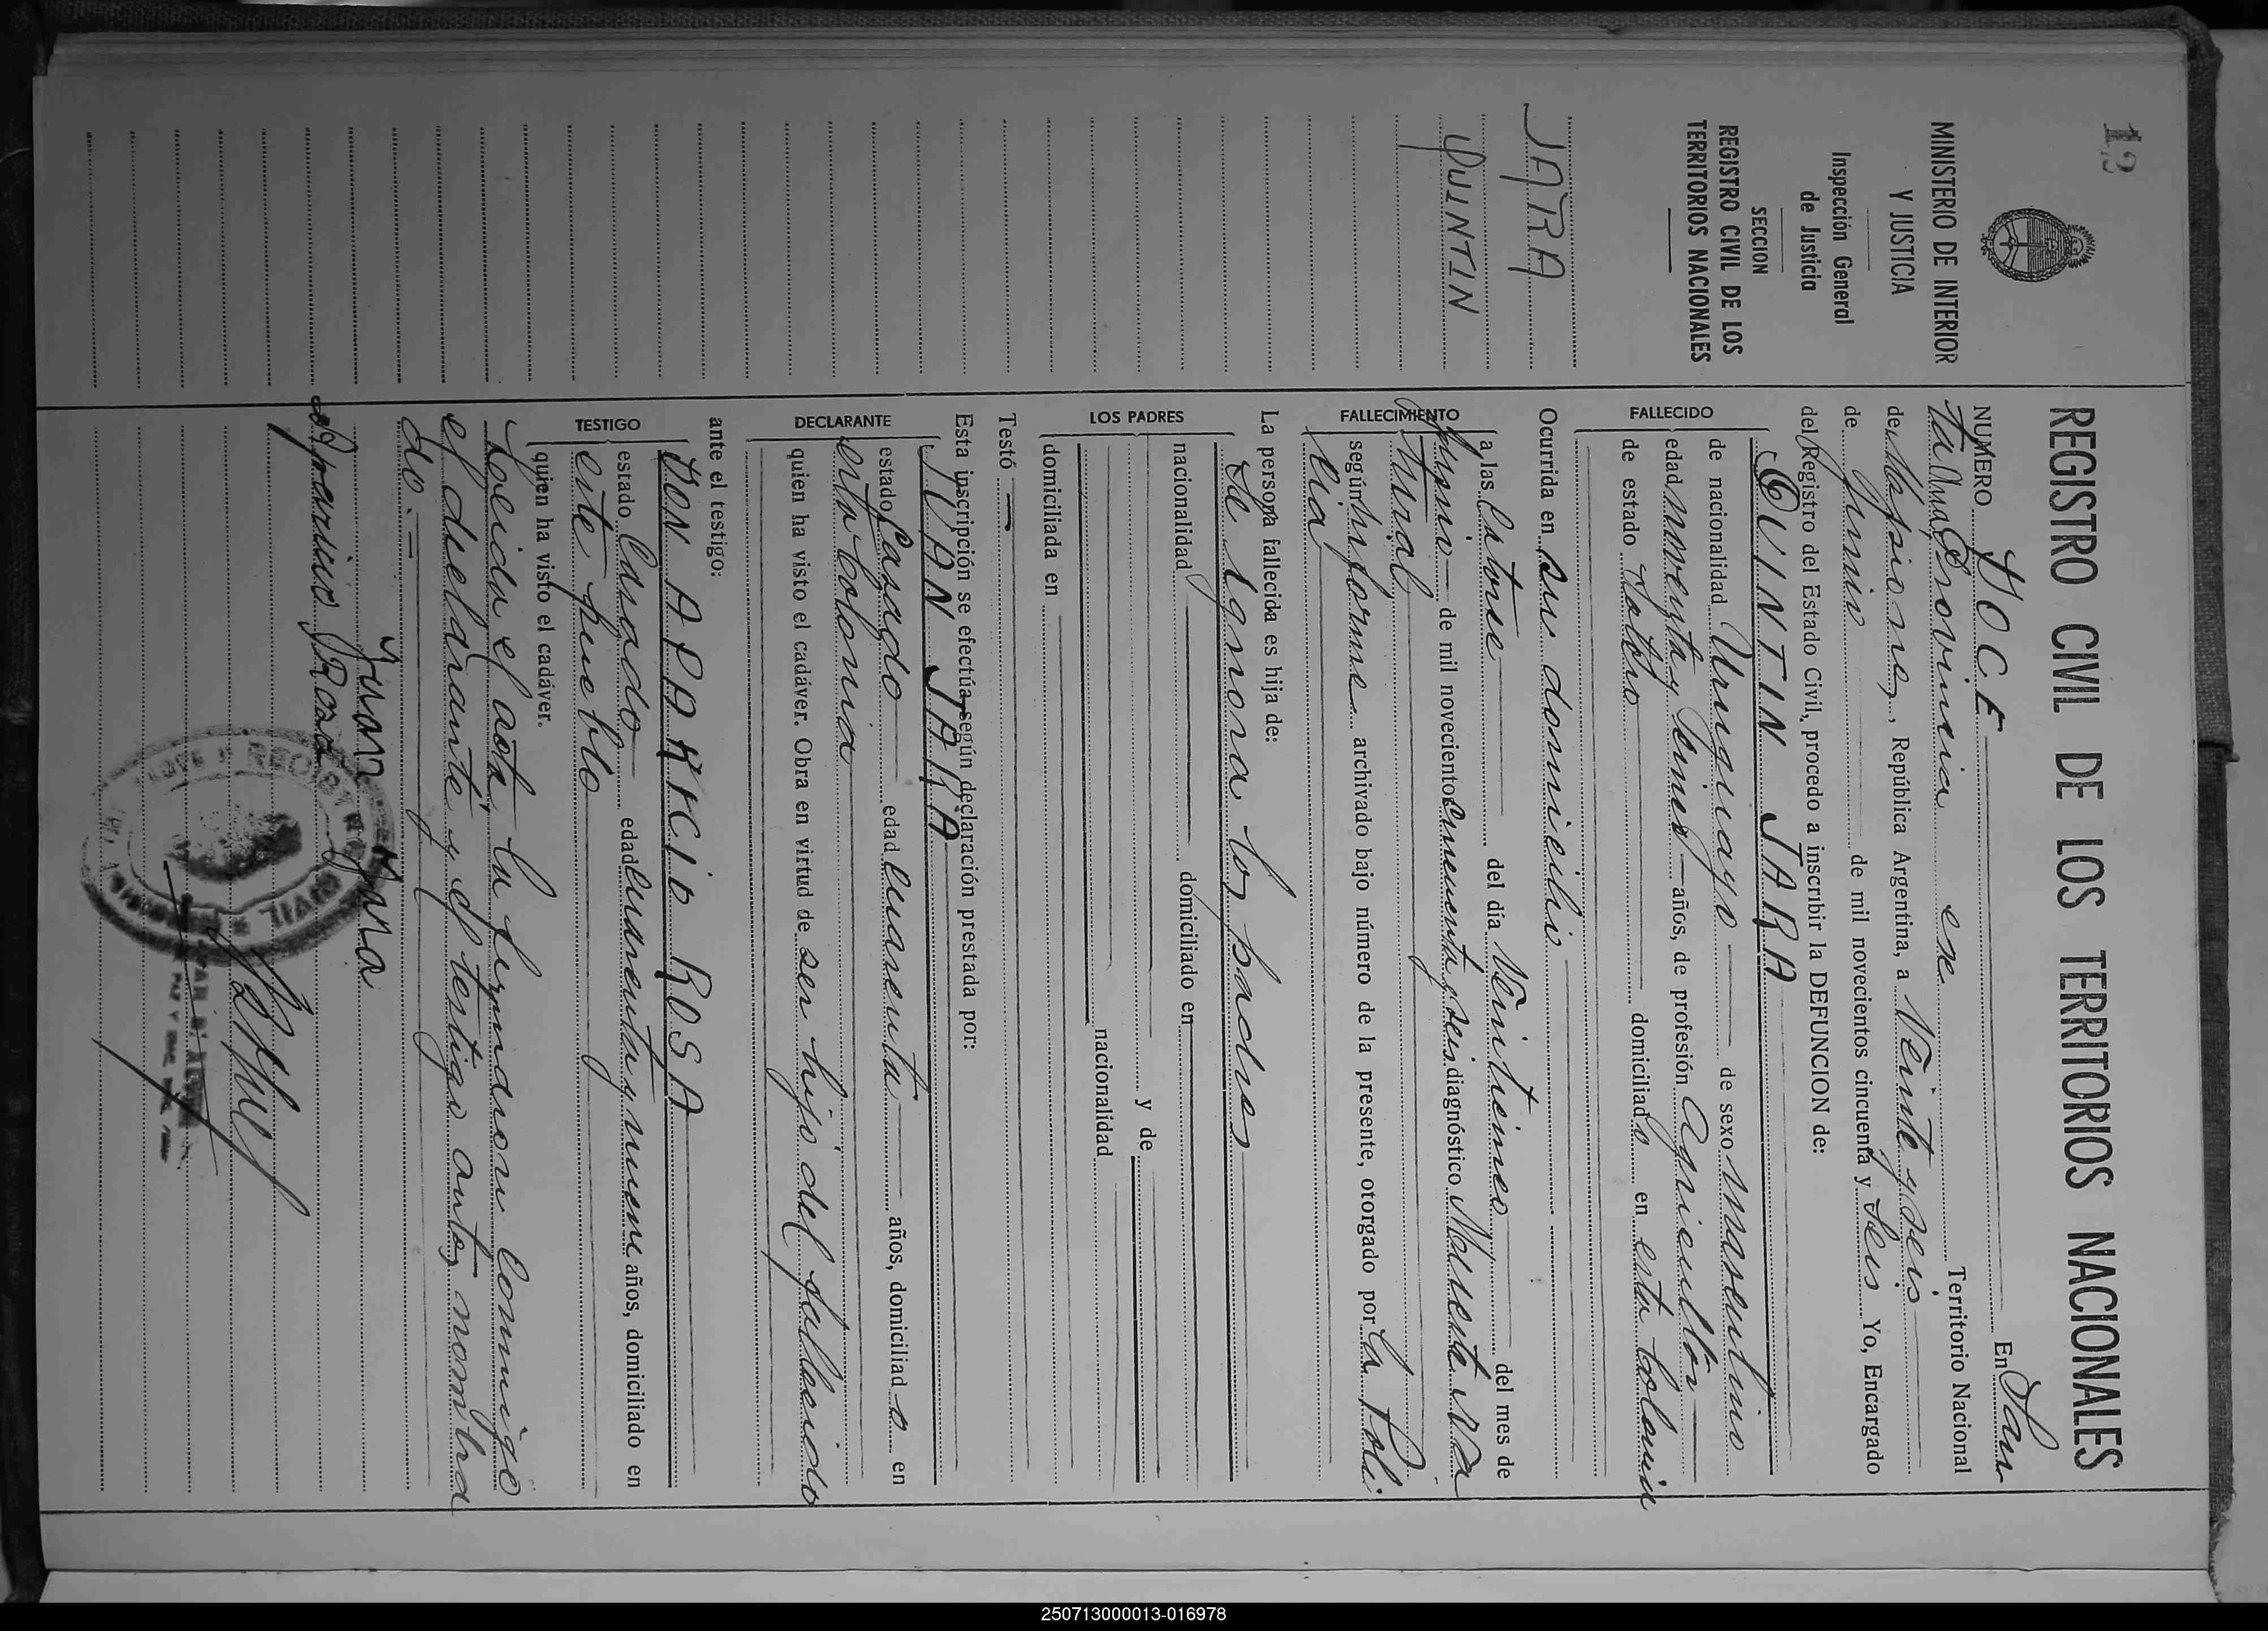 12
MINISTERIO DE INTERIOR
Y JUSTICIA
Inspección General
de Justicia
SECCION
REGISTRO CIVIL DE LOS
TERRITORIOS NACIONALES
JARA
QUINTIN
REGISTRO CIVIL DE LOS TERRITORIOS NACIONALES
NUMERO DOCE En San
ta Ana Provincia ese Territorio Nacional
de Misiones, República Argentina, a Veinte y seis
de Junio de mil novecientos cincuenta y seis Yo, Encargado
del Registro del Estado Civil, procedo a inscribir la DEFUNCION de:
FALLECIDO
QUINTIN JARA
de nacionalidad Uruguayo de sexo masculino
edad noventa y cinco años, de profesión Agricultor
de estado Soltero domiciliado en esta Colonia
Ocurrida en su domicilio
FALLECIMIENTO
a las Catorce del día Veinticinco del mes de
Junio de mil novecientos cincuenta y seis, diagnóstico Muerte na
tural
según informe archivado bajo número de la presente, otorgado por la Poli
cia
La persona fallecida es hija de:
LOS PADRES
Se Ignora los padres
nacionalidad domiciliado en
y de
nacionalidad
domiciliada en
Testó
Esta inscripción se efectúa según declaración prestada por:
DECLARANTE
JUAN JARA
estado Casado edad cuarenta años, domiciliado en
esta Colonia
quien ha visto el cadáver. Obra en virtud de ser hijo del fallecido
ante el testigo:
TESTIGO
DON APARICIO ROSA
estado Casado edad cuarenta y nueve años, domiciliado en
este pueblo
quien ha visto el cadáver.
Leida el acta, la firmaron conmigo
el declarante y el testigo antes nombra
do.=
Juan Jara
Aparicio Rosa
REGISTRO CIVIL
250713000013-016978